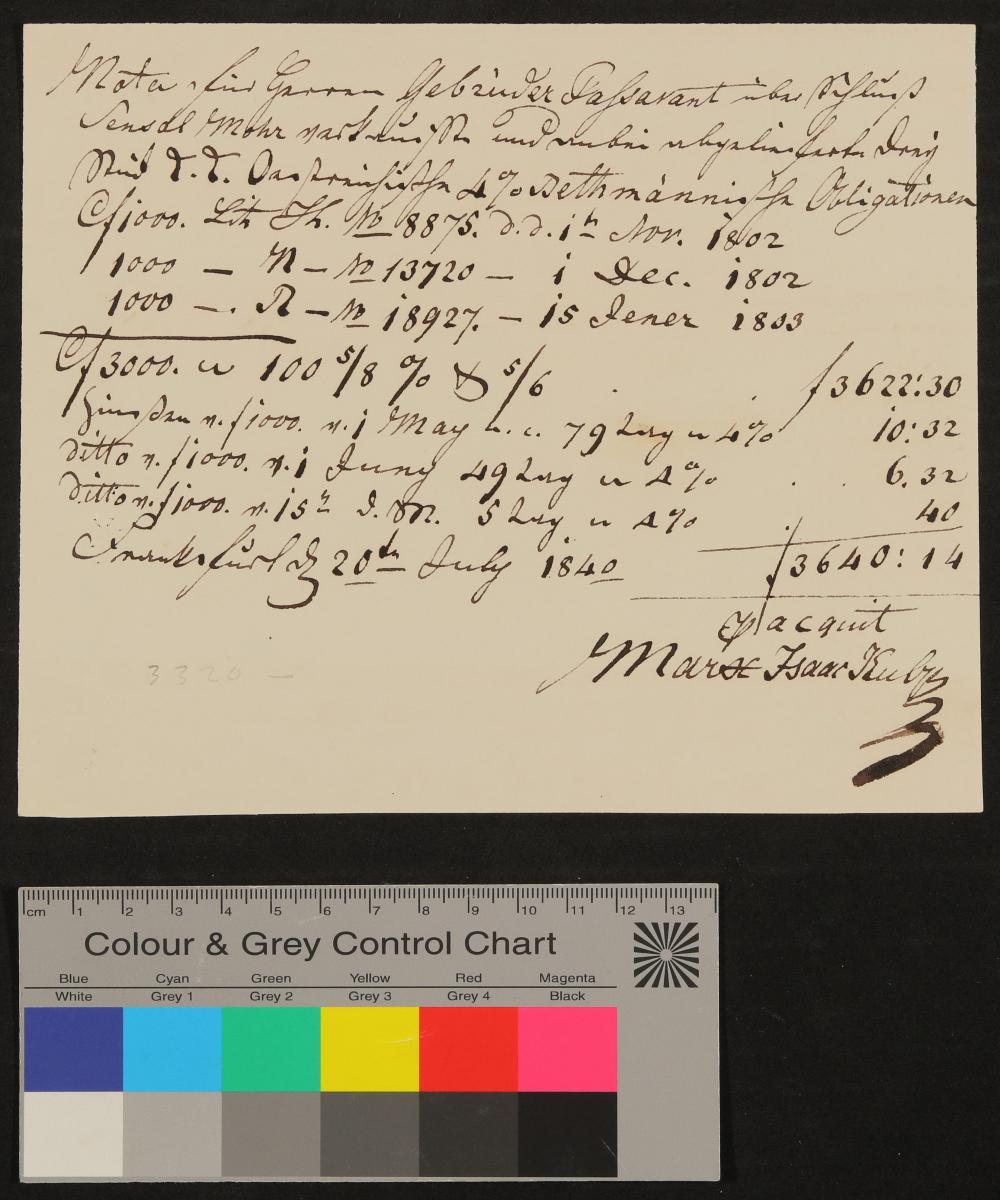 Nota für Herren Gebrüder Passavant über Schluß
Sensal Mohr verkaufte und anbei abgelieferte drey
Stück K. K. Oestreichische 4% Bethmännische Obligationen
Cf 1000. Lit H. No 8875. d.d. 1n Nov. 1802
1000 — N — No 13720 — 1 Dec. 1802
1000 —. R — No 18927. — 15 Jener 1803
Cf 3000. a 100 5/8 % & 5/6 . . f 3622:30
Zinßen v. f 1000. v. 1 May a. c. 79 Tag a 4% 10:32
ditto v. f 1000. v. 1 Juny 49 Tag a 4% . . 6.32
ditto v. f 1000. v. 15n d. M. 5 Tag a 4% . 40
Frankfurt d 20ten July 1840 f 3640:14
p acquit
Marx Isaac Kulp
3320 —
cm 1 2 3 4 5 6 7 8 9 10 11 12 13
Colour & Grey Control Chart
Blue Cyan Green Yellow Red Magenta
White Grey 1 Grey 2 Grey 3 Grey 4 Black